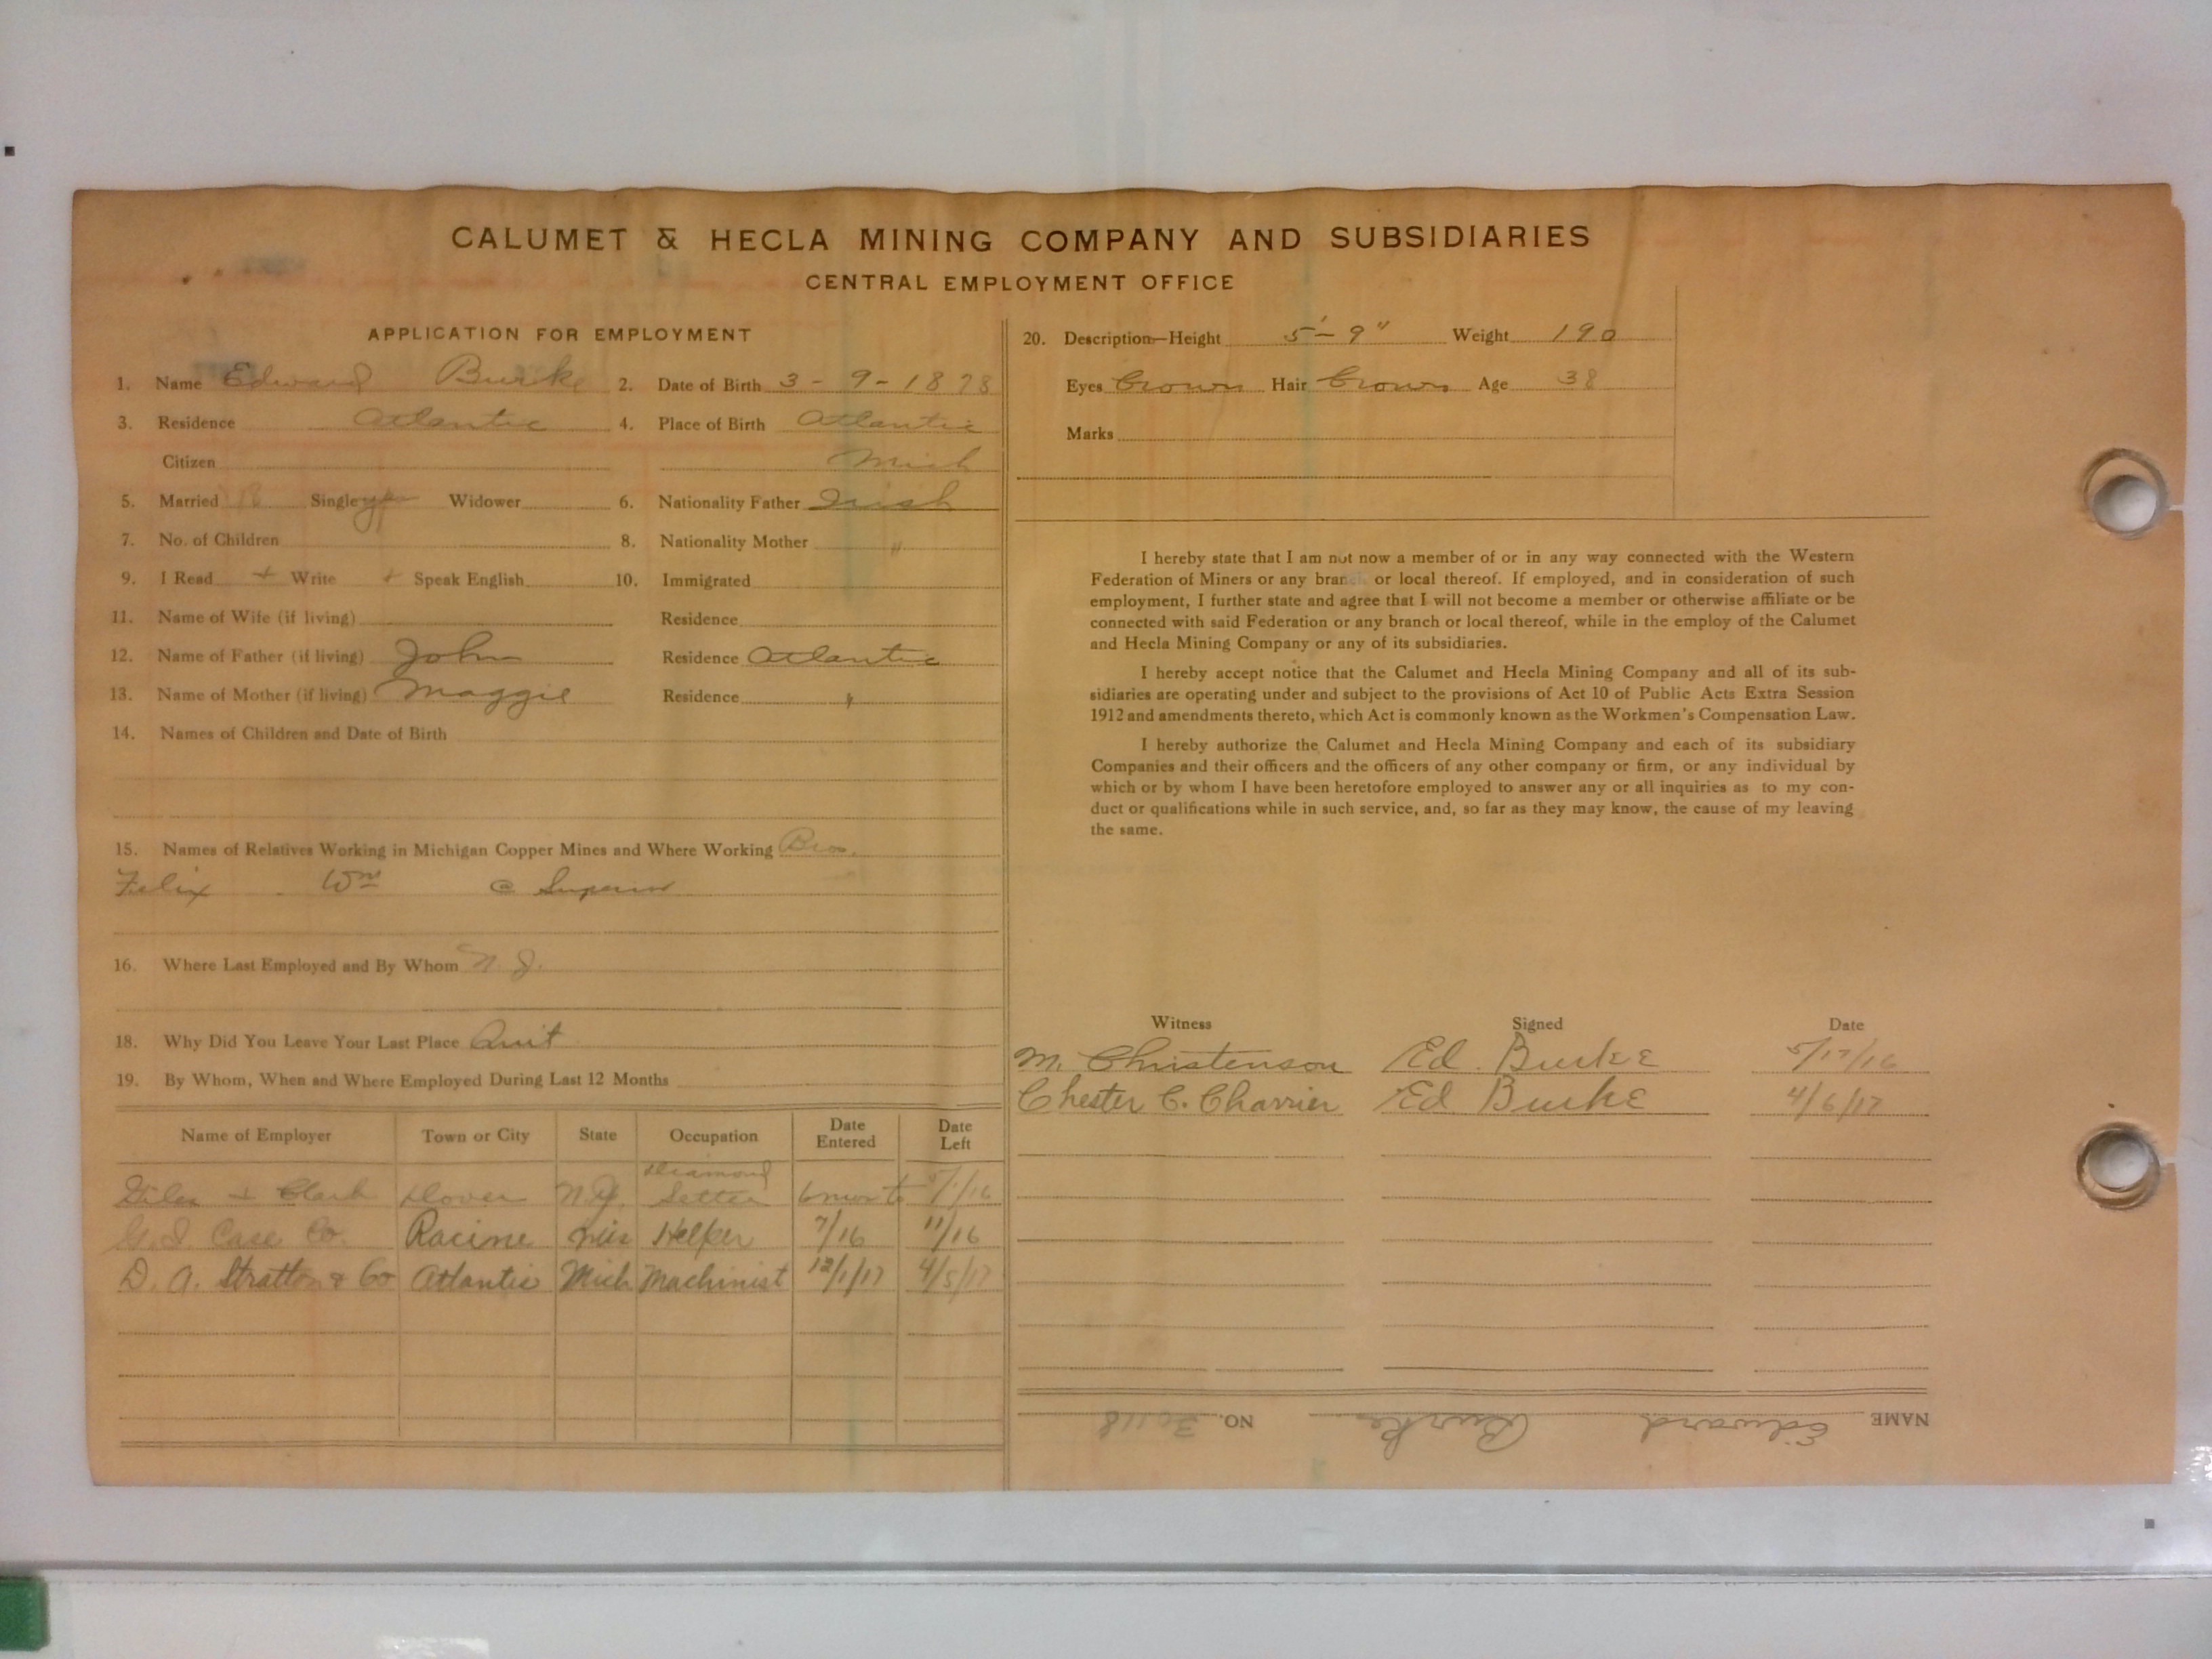 CALUMET & HECLA MINING COMPANY AND SUBSIDIARIES
CENTRAL EMPLOYMENT OFFICE
APPLICATION FOR EMPLOYMENT
1. Name Edward Burke 2. Date of Birth 3-9-1878
3. Residence Atlantic 4. Place of Birth Atlantic
Citizen Mich
5. Married Single Widower 6. Nationality Father Irish
7. No. of Children 8. Nationality Mother "
9. I Read + Write + Speak English 10. Immigrated
11. Name of Wife (if living) Residence
12. Name of Father (if living) John Residence Atlantic
13. Name of Mother (if living) Maggie Residence "
14. Names of Children and Date of Birth
15. Names of Relatives Working in Michigan Copper Mines and Where Working Bros.
Felix Wm @ Superior
16. Where Last Employed and By Whom N. J.
18. Why Did You Leave Your Last Place Quit
19. By Whom, When and Where Employed During Last 12 Months
Name of Employer Town or City State Occupation Date Entered Date Left
& Clark Dover N.J. Diamond Setter 6 mos to /1/16
Case Co. Racine Wis Helper 7/16 11/16
D. A. Stratton & Co Atlantic Mich Machinist 12/1/17 4/5/17
20. Description—Height 5'-9" Weight 190
Eyes brown Hair brown Age 38
Marks
I hereby state that I am not now a member of or in any way connected with the Western
Federation of Miners or any branch or local thereof. If employed, and in consideration of such
employment, I further state and agree that I will not become a member or otherwise affiliate or be
connected with said Federation or any branch or local thereof, while in the employ of the Calumet
and Hecla Mining Company or any of its subsidiaries.
I hereby accept notice that the Calumet and Hecla Mining Company and all of its sub-
sidiaries are operating under and subject to the provisions of Act 10 of Public Acts Extra Session
1912 and amendments thereto, which Act is commonly known as the Workmen's Compensation Law.
I hereby authorize the Calumet and Hecla Mining Company and each of its subsidiary
Companies and their officers and the officers of any other company or firm, or any individual by
which or by whom I have been heretofore employed to answer any or all inquiries as to my con-
duct or qualifications while in such service, and, so far as they may know, the cause of my leaving
the same.
Witness Signed Date
M. Christenson Ed. Burke 5/17/16
Chester C. Charrier Ed Burke 4/6/17
NAME Edward Burke NO. 30118